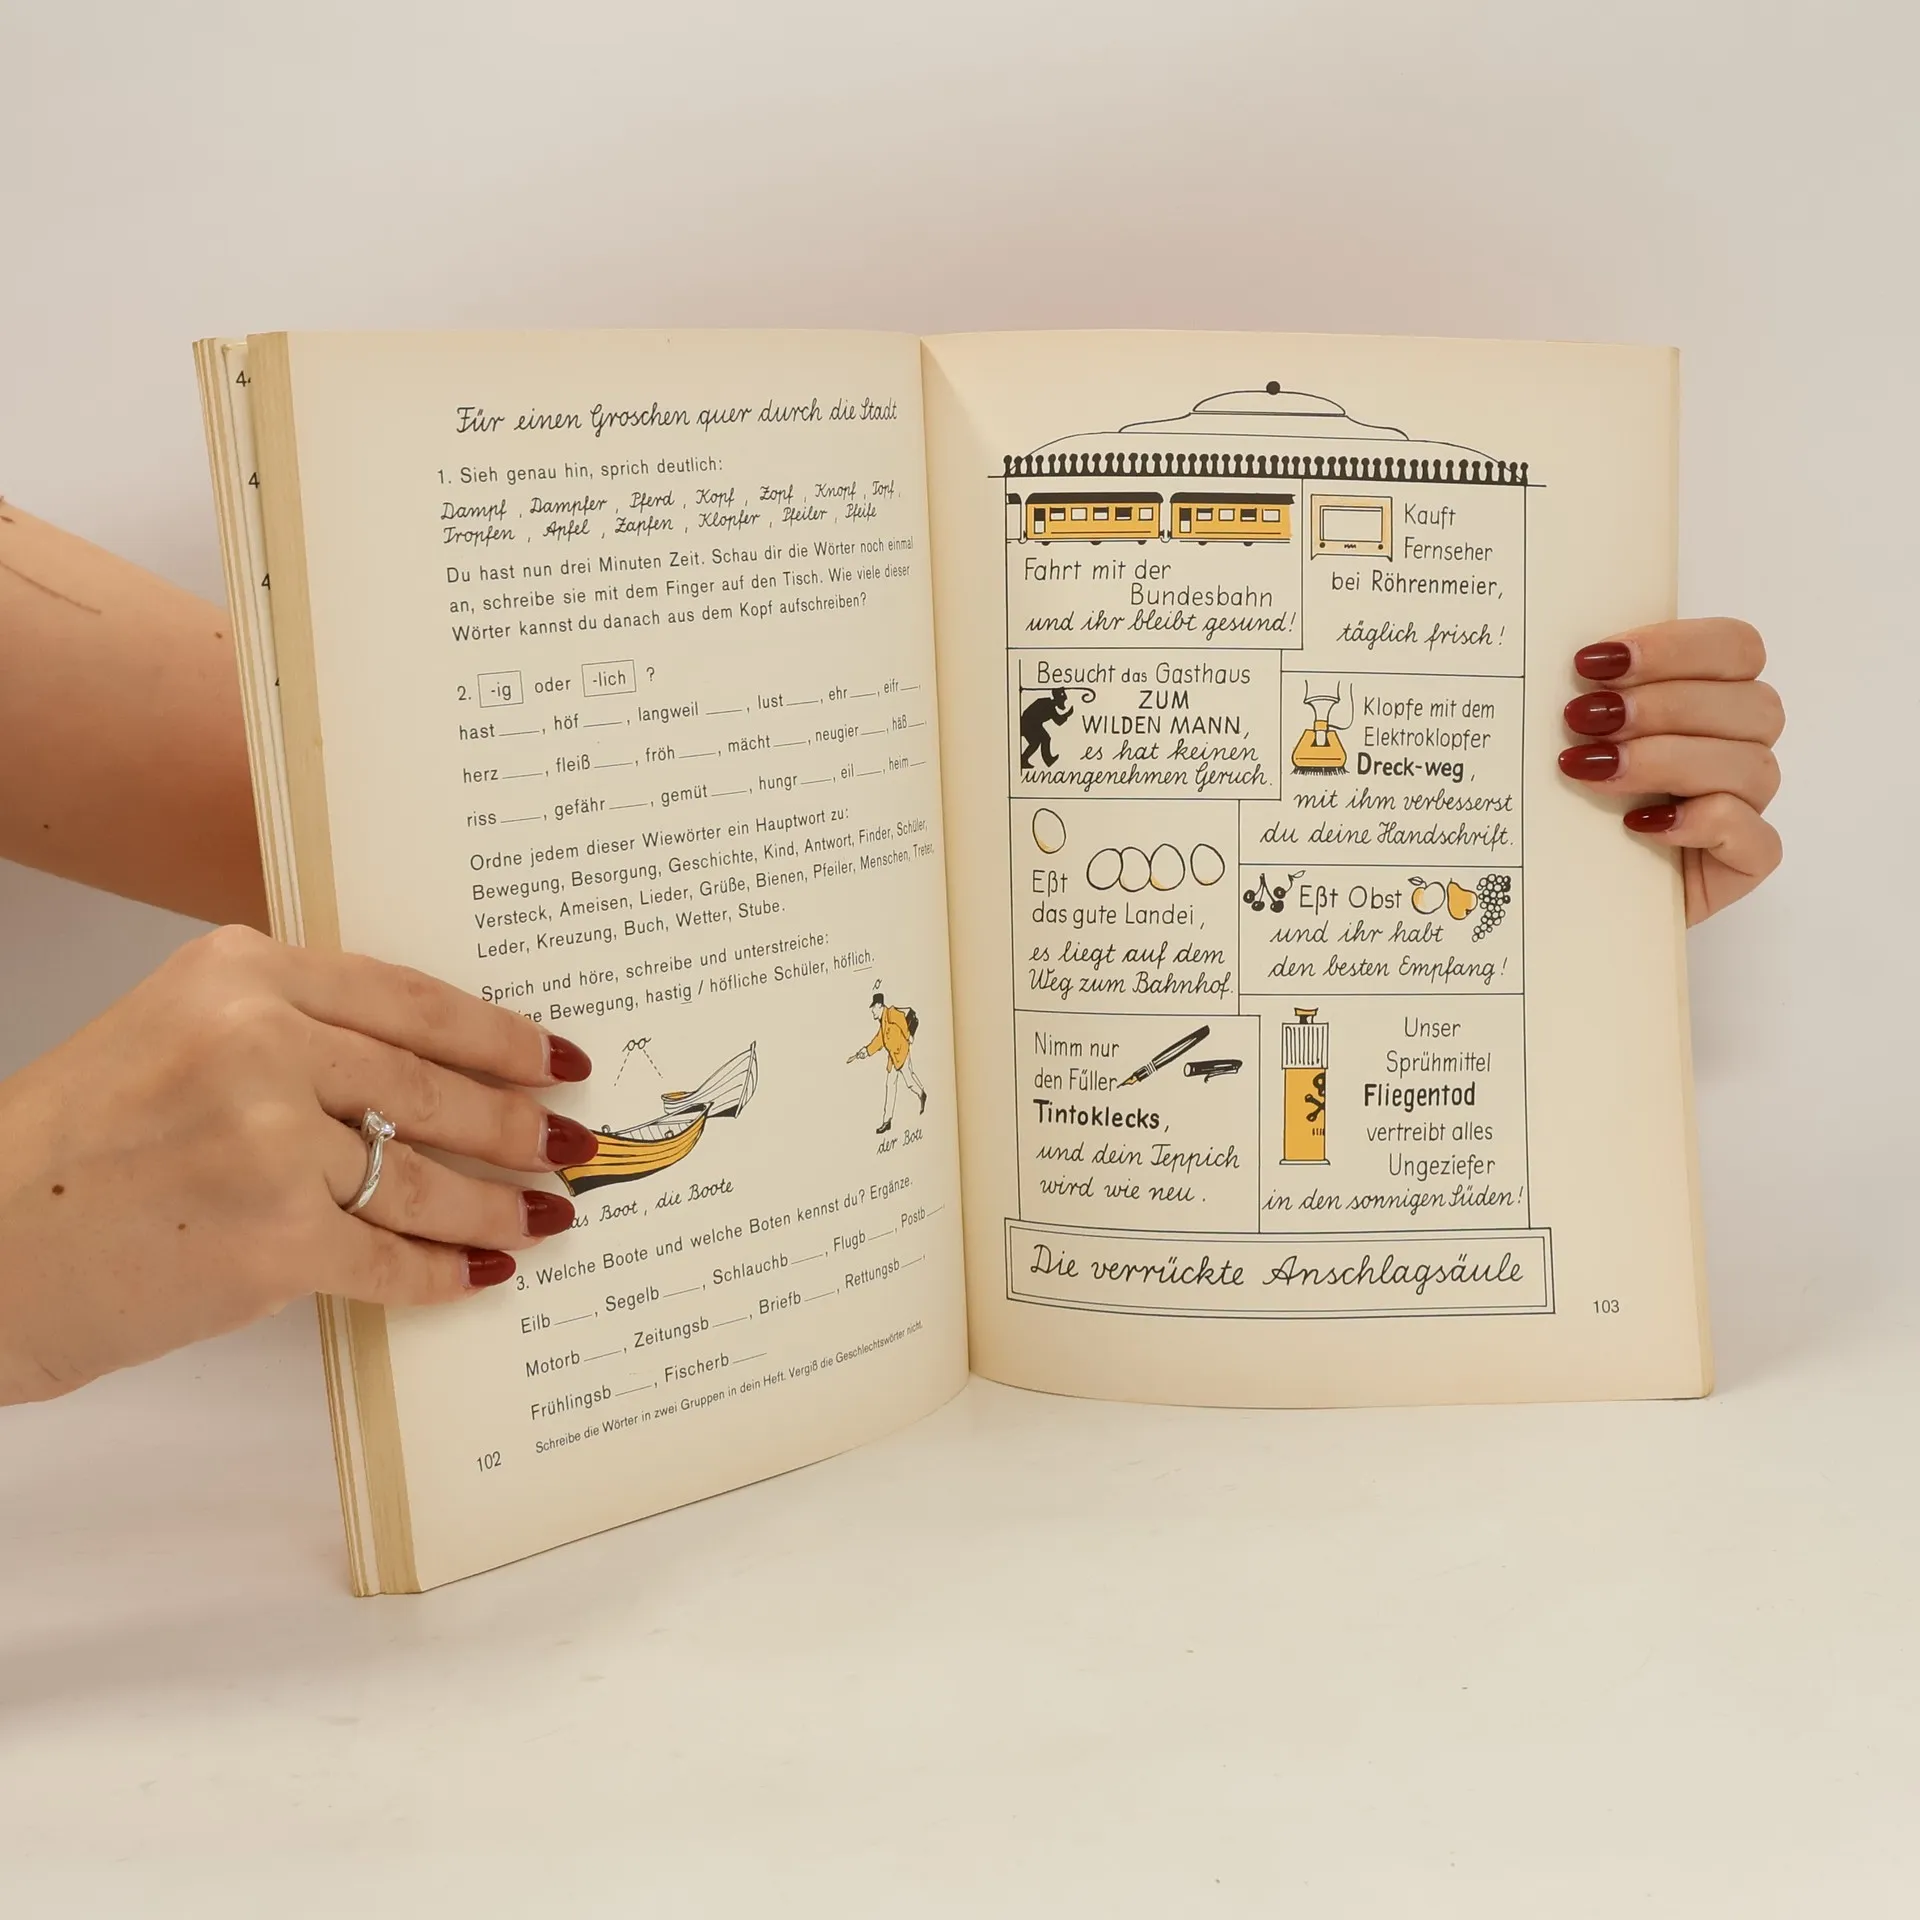 Für einen Groschen quer durch die Stadt
1. Sieh genau hin, sprich deutlich:
Dampf, Dampfer, Pferd, Kopf, Zopf, Knopf, Topf,
Tropfen, Apfel, Zapfen, Klopfer, Pfeiler, Pfeife
Du hast nun drei Minuten Zeit. Schau dir die Wörter noch einmal
an, schreibe sie mit dem Finger auf den Tisch. Wie viele dieser
Wörter kannst du danach aus dem Kopf aufschreiben?
2. -ig oder -lich ?
hast____, höf____, langweil____, lust____, ehr____, eifr____,
herz____, fleiß____, fröh____, mächt____, neugier____, häß____,
riss____, gefähr____, gemüt____, hungr____, eil____, heim____
Ordne jedem dieser Wiewörter ein Hauptwort zu:
Bewegung, Besorgung, Geschichte, Kind, Antwort, Finder, Schüler,
Versteck, Ameisen, Lieder, Grüße, Bienen, Pfeiler, Menschen, Treter,
Leder, Kreuzung, Buch, Wetter, Stube.
Sprich und höre, schreibe und unterstreiche:
ge Bewegung, hastig / höfliche Schüler, höflich.
oo
o
der Bote
as Boot, die Boote
3. Welche Boote und welche Boten kennst du? Ergänze.
Eilb____, Segelb____, Schlauchb____, Flugb____, Postb____,
Motorb____, Zeitungsb____, Briefb____, Rettungsb____,
Frühlingsb____, Fischerb____
Schreibe die Wörter in zwei Gruppen in dein Heft. Vergiß die Geschlechtswörter nicht.
102
Fahrt mit der
Bundesbahn
und ihr bleibt gesund!
Kauft
Fernseher
bei Röhrenmeier,
täglich frisch!
Besucht das Gasthaus
ZUM
WILDEN MANN,
es hat keinen
unangenehmen Geruch.
Klopfe mit dem
Elektroklopfer
Dreck-weg,
mit ihm verbesserst
du deine Handschrift.
Eßt
das gute Landei,
es liegt auf dem
Weg zum Bahnhof.
Eßt Obst
und ihr habt
den besten Empfang!
Nimm nur
den Füller
Tintoklecks,
und dein Teppich
wird wie neu.
Unser
Sprühmittel
Fliegentod
vertreibt alles
Ungeziefer
in den sonnigen Süden!
Die verrückte Anschlagsäule
103